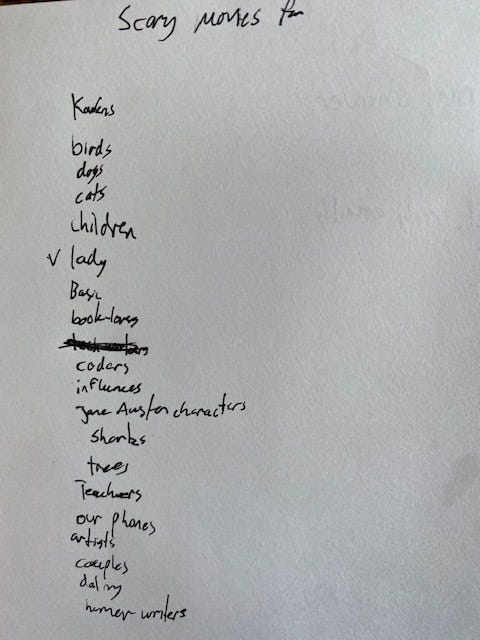 Scary movies for
birds
dogs
cats
children
V lady
Basic
book-lovers
coders
influences
Jane Austen characters
sharks
trees
Teachers
our phones
artists
couples
dating
humor writers